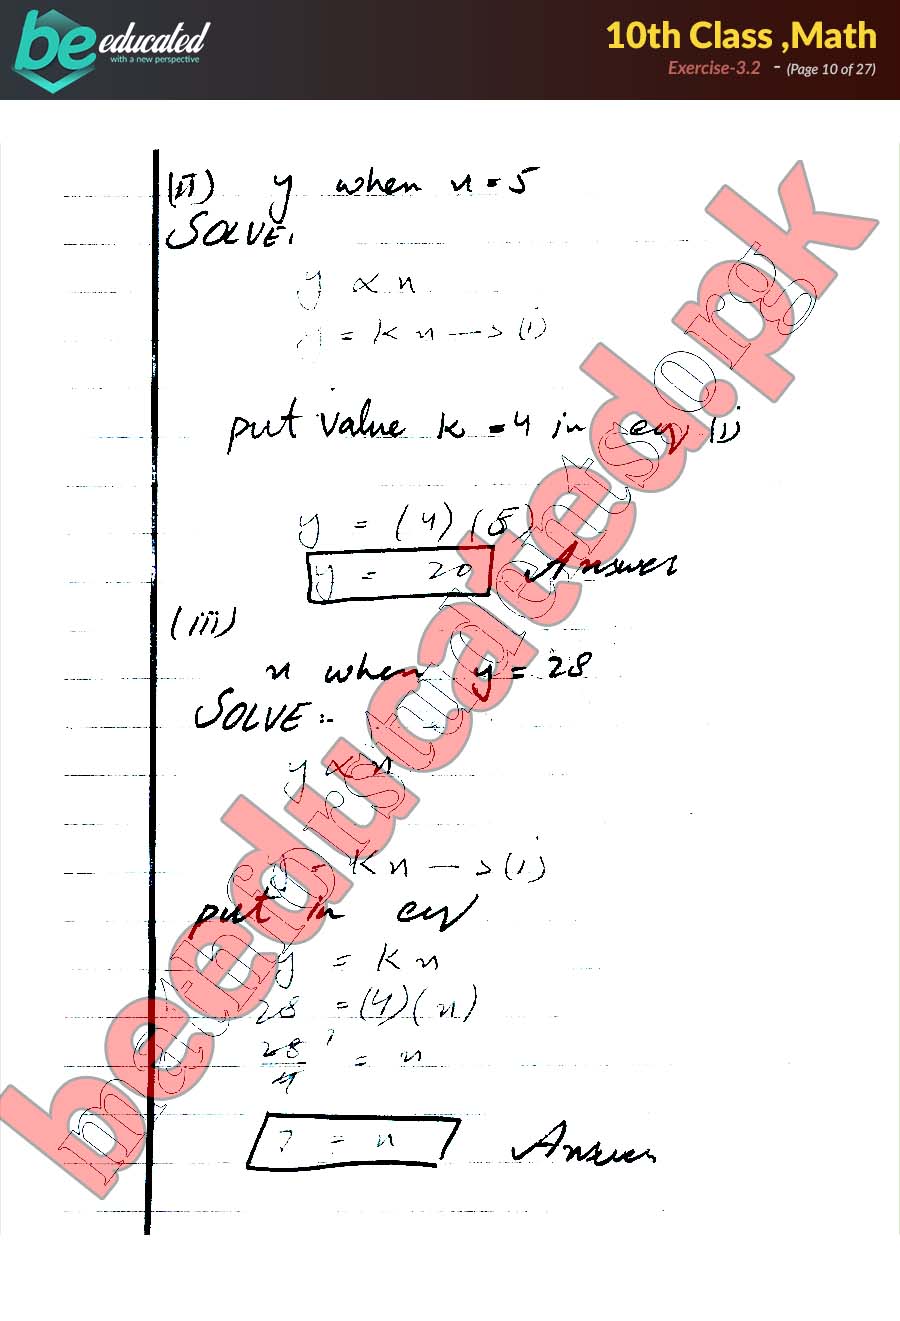 be educated
with a new perspective
10th Class ,Math
Exercise-3.2 - (Page 10 of 27)
(ii) y when x = 5
SOLVE:
y ∝ x
y = kx —> (i)
put value k = 4 in eq (i)
y = (4)(5)
y = 20 Answer
(iii)
x when y = 28
SOLVE :-
y ∝ x
y = kx —> (i)
put in eq
y = kx
28 = (4)(x)
28/4 7 = x
7 = x Answer
beeducated.pk